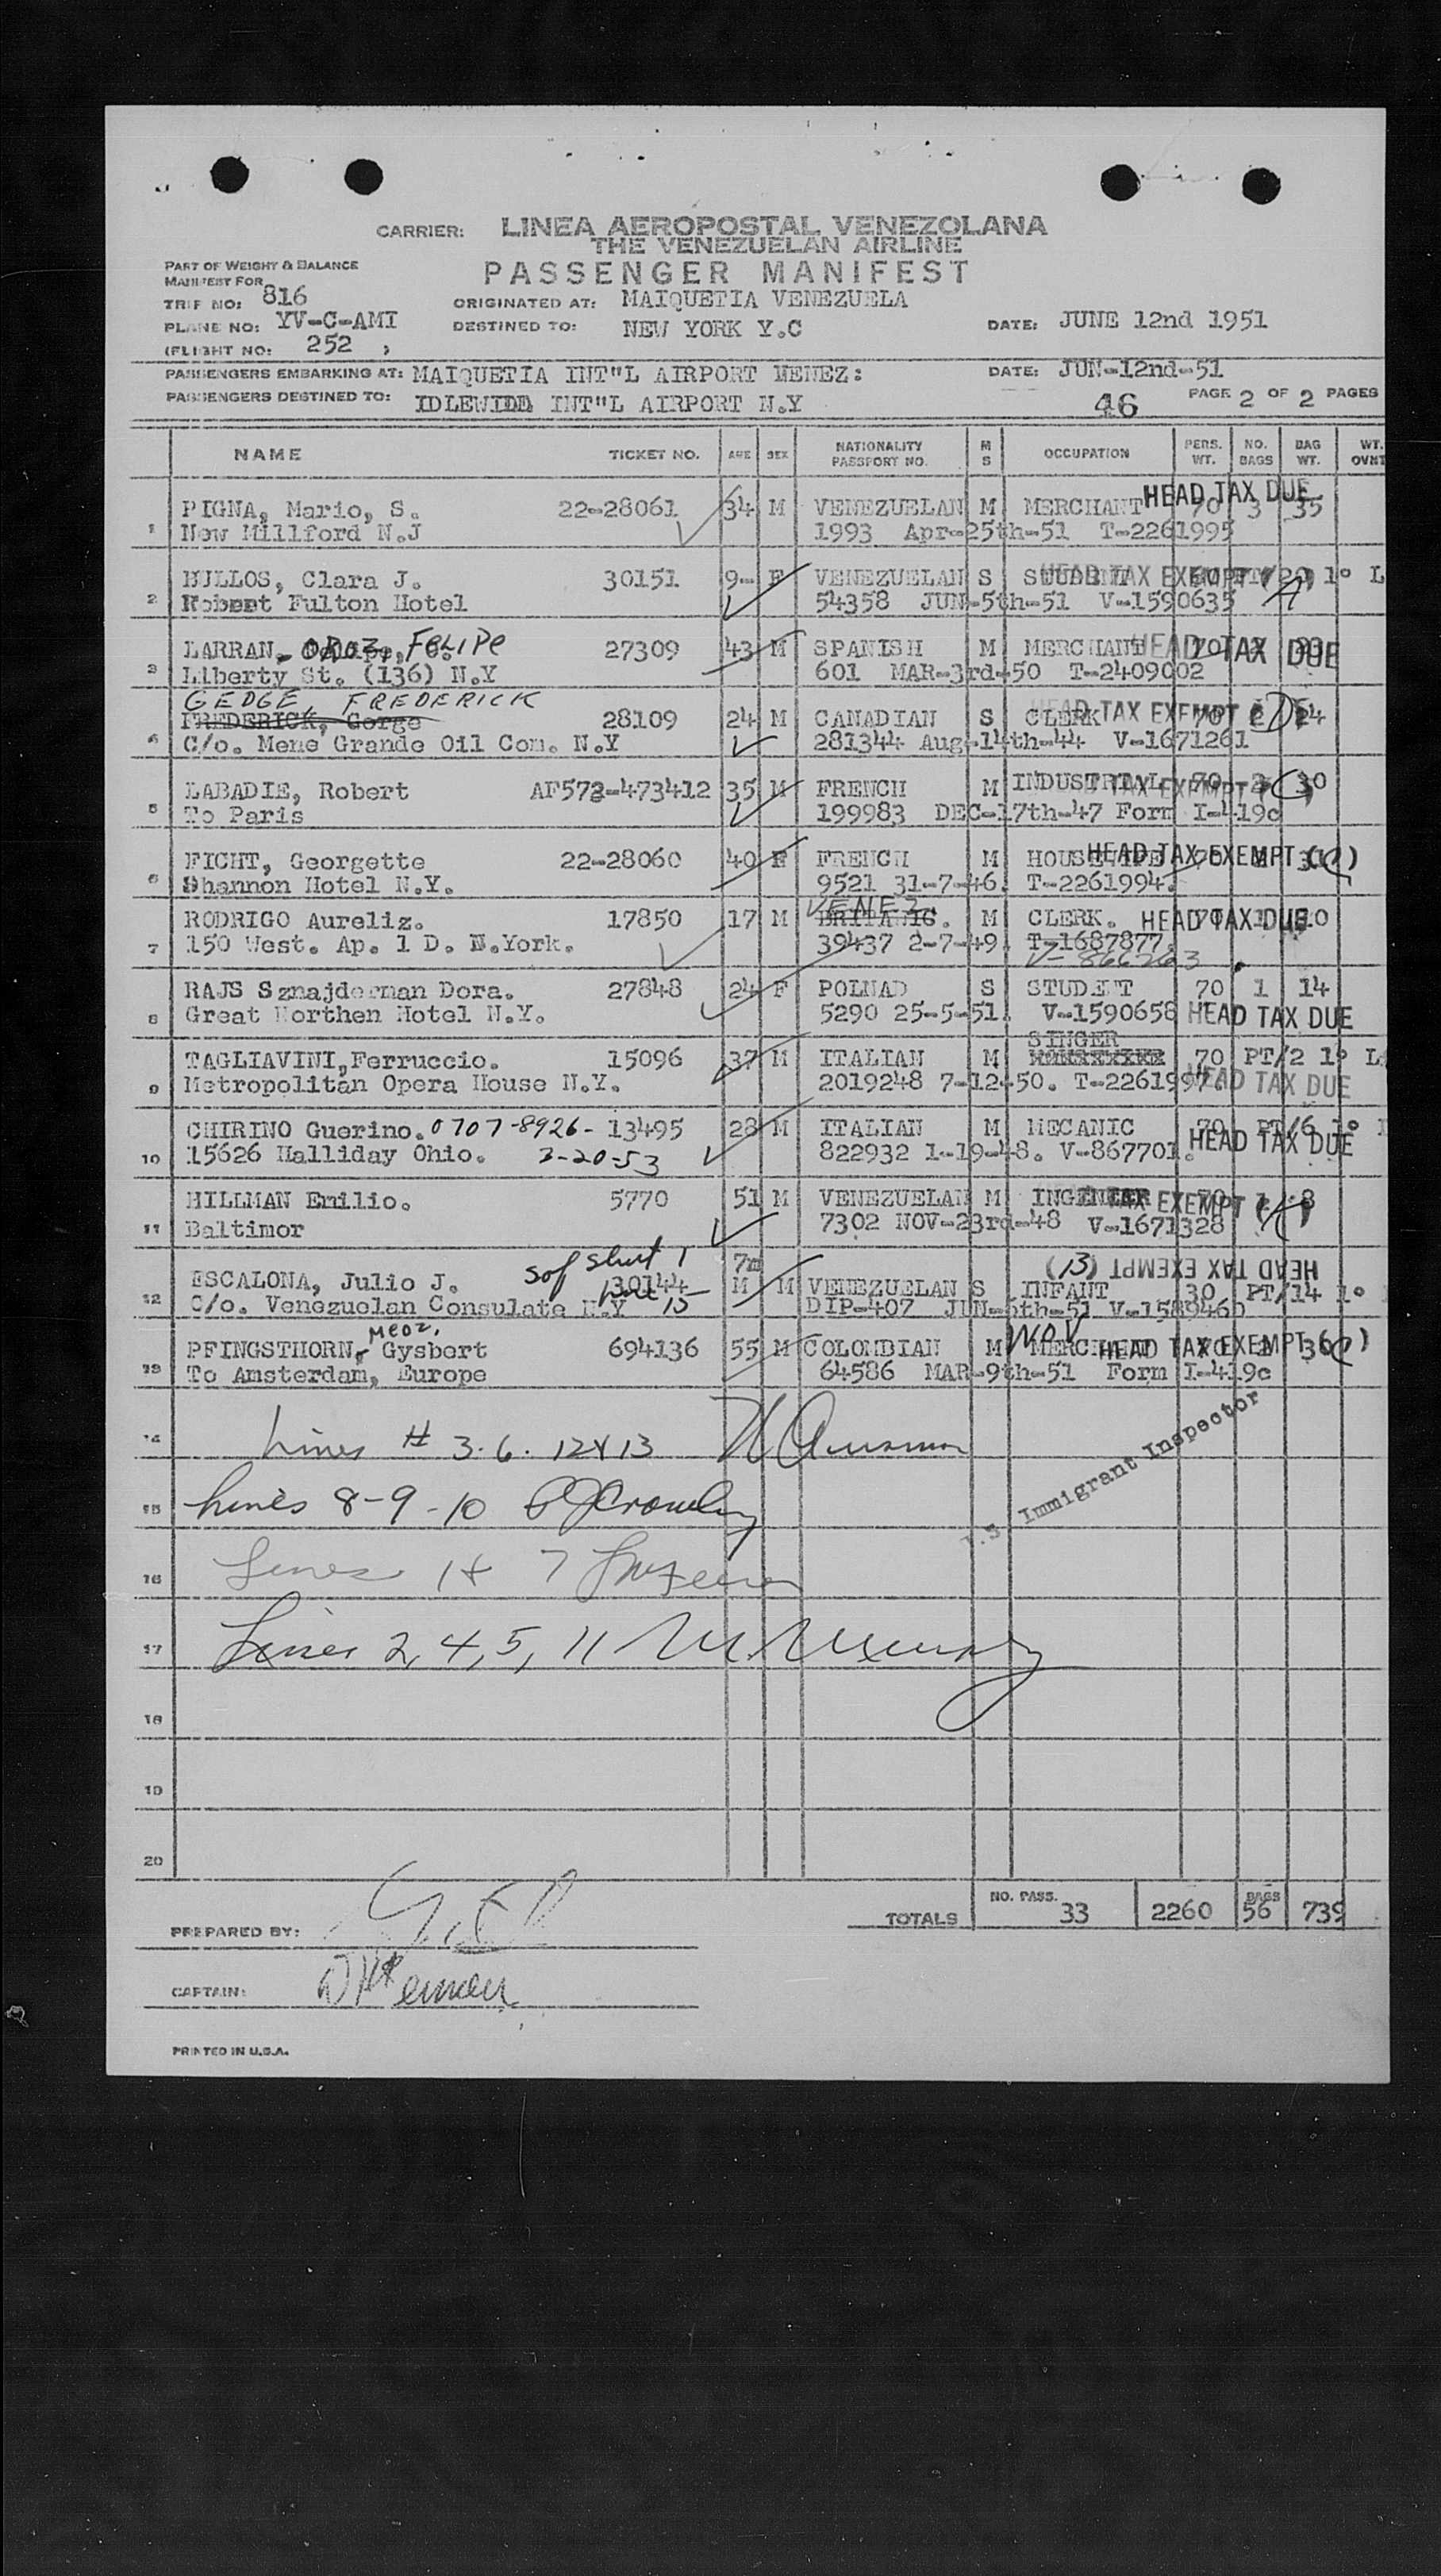 CARRIER: LINEA AEROPOSTAL VENEZOLANA
THE VENEZUELAN AIRLINE
PASSENGER MANIFEST
PART OF WEIGHT & BALANCE
MANIFEST FOR
TRIP NO: 816
ORIGINATED AT: MAIQUETIA VENEZUELA
PLANE NO: YV-C-AMI
DESTINED TO: NEW YORK Y.C
DATE: JUNE 12nd 1951
(FLIGHT NO: 252 )
PASSENGERS EMBARKING AT: MAIQUETIA INT"L AIRPORT VENEZ:
DATE: JUN-12nd-51
PASSENGERS DESTINED TO: IDLEWIDD INT"L AIRPORT N.Y
46 PAGE 2 OF 2 PAGES
NAME TICKET NO. AGE SEX NATIONALITY PASSPORT NO. M S OCCUPATION PERS. WT. NO. BAGS BAG WT. WT. OVNT
1 PIGNA, Mario, S. 22-28061 34 M VENEZUELAN M MERCHANT 70 3 35 HEAD TAX DUE
New Millford N.J 1993 Apr-25th-51 T-2261995
2 BILLOS, Clara J. 30151 9- F VENEZUELAN S STUDENT HEAD TAX EXEMPT (A) 1º L
Robert Fulton Hotel 54358 JUN-5th-51 V-1590635
3 LARRAN, OROZ, FELIPE 27309 43 M SPANISH M MERCHANT HEAD TAX DUE
Liberty St. (136) N.Y 601 MAR-3rd-50 T-2409002
GEDGE, FREDERICK
4 FREDERICK, Gorge 28109 24 M CANADIAN S CLERK 70 24 HEAD TAX EXEMPT (D)
C/o. Mene Grande Oil Com. N.Y 281344 Aug-14th-44 V-1671261
5 LABADIE, Robert AF572-473412 35 M FRENCH M INDUSTRIAL 70 2 30 TAX EXEMPT (C)
To Paris 199983 DEC-17th-47 Form I-419c
6 FICHT, Georgette 22-28060 40 F FRENCH M HOUSEWIFE HEAD TAX EXEMPT (C)
Shannon Hotel N.Y. 9521 31-7-46. T-2261994.
VENEZ.
7 RODRIGO Aureliz. 17850 17 M BRITANIC. M CLERK. 70 1 HEAD TAX DUE
150 West. Ap. 1 D. N.York. 39437 2-7-49. T-1687877.
V-866263
8 RAJS Sznajderman Dora. 27848 24 F POLNAD S STUDENT 70 1 14
Great Northen Hotel N.Y. 5290 25-5-51. V-1590658 HEAD TAX DUE
SINGER
9 TAGLIAVINI, Ferruccio. 15096 37 M ITALIAN M 70 PT/2 1º L
Metropolitan Opera House N.Y. 2019248 7-12-50. T-2261997. HEAD TAX DUE
10 CHIRINO Guerino. 0707-8926- 13495 28 M ITALIAN M MECANIC 70 PT/6 1º
15626 Halliday Ohio. 3-20-53 822932 1-19-48. V-867701. HEAD TAX DUE
11 HILLMAN Emilio. 5770 51 M VENEZUELAN M 70 1 8 TAX EXEMPT (A)
Baltimor 7302 NOV-23rd-48 V-1671328
HEAD TAX EXEMPT (13)
7m
12 ESCALONA, Julio J. 30144 M M VENEZUELAN S INFANT 30 PT/14 1º
C/o. Venezuelan Consulate N.Y DIP-407 JUN-5th-51
13 PFINGSTHORN, Gysbert 694136 55 M COLOMBIAN M MERCHANT HEAD TAX EXEMPT (C)
To Amsterdam, Europe 64586 MAR-9th-51 Form I-419c
14 Lines # 3. 6. 12 & 13
U.S. Immigrant Inspector
15 Lines 8-9-10
16 Lines 1 & 7
17 Lines 2, 4, 5, 11
18
19
20
TOTALS NO. PASS. 33 2260 BAGS 56 739
PREPARED BY:
CAPTAIN:
PRINTED IN U.S.A.